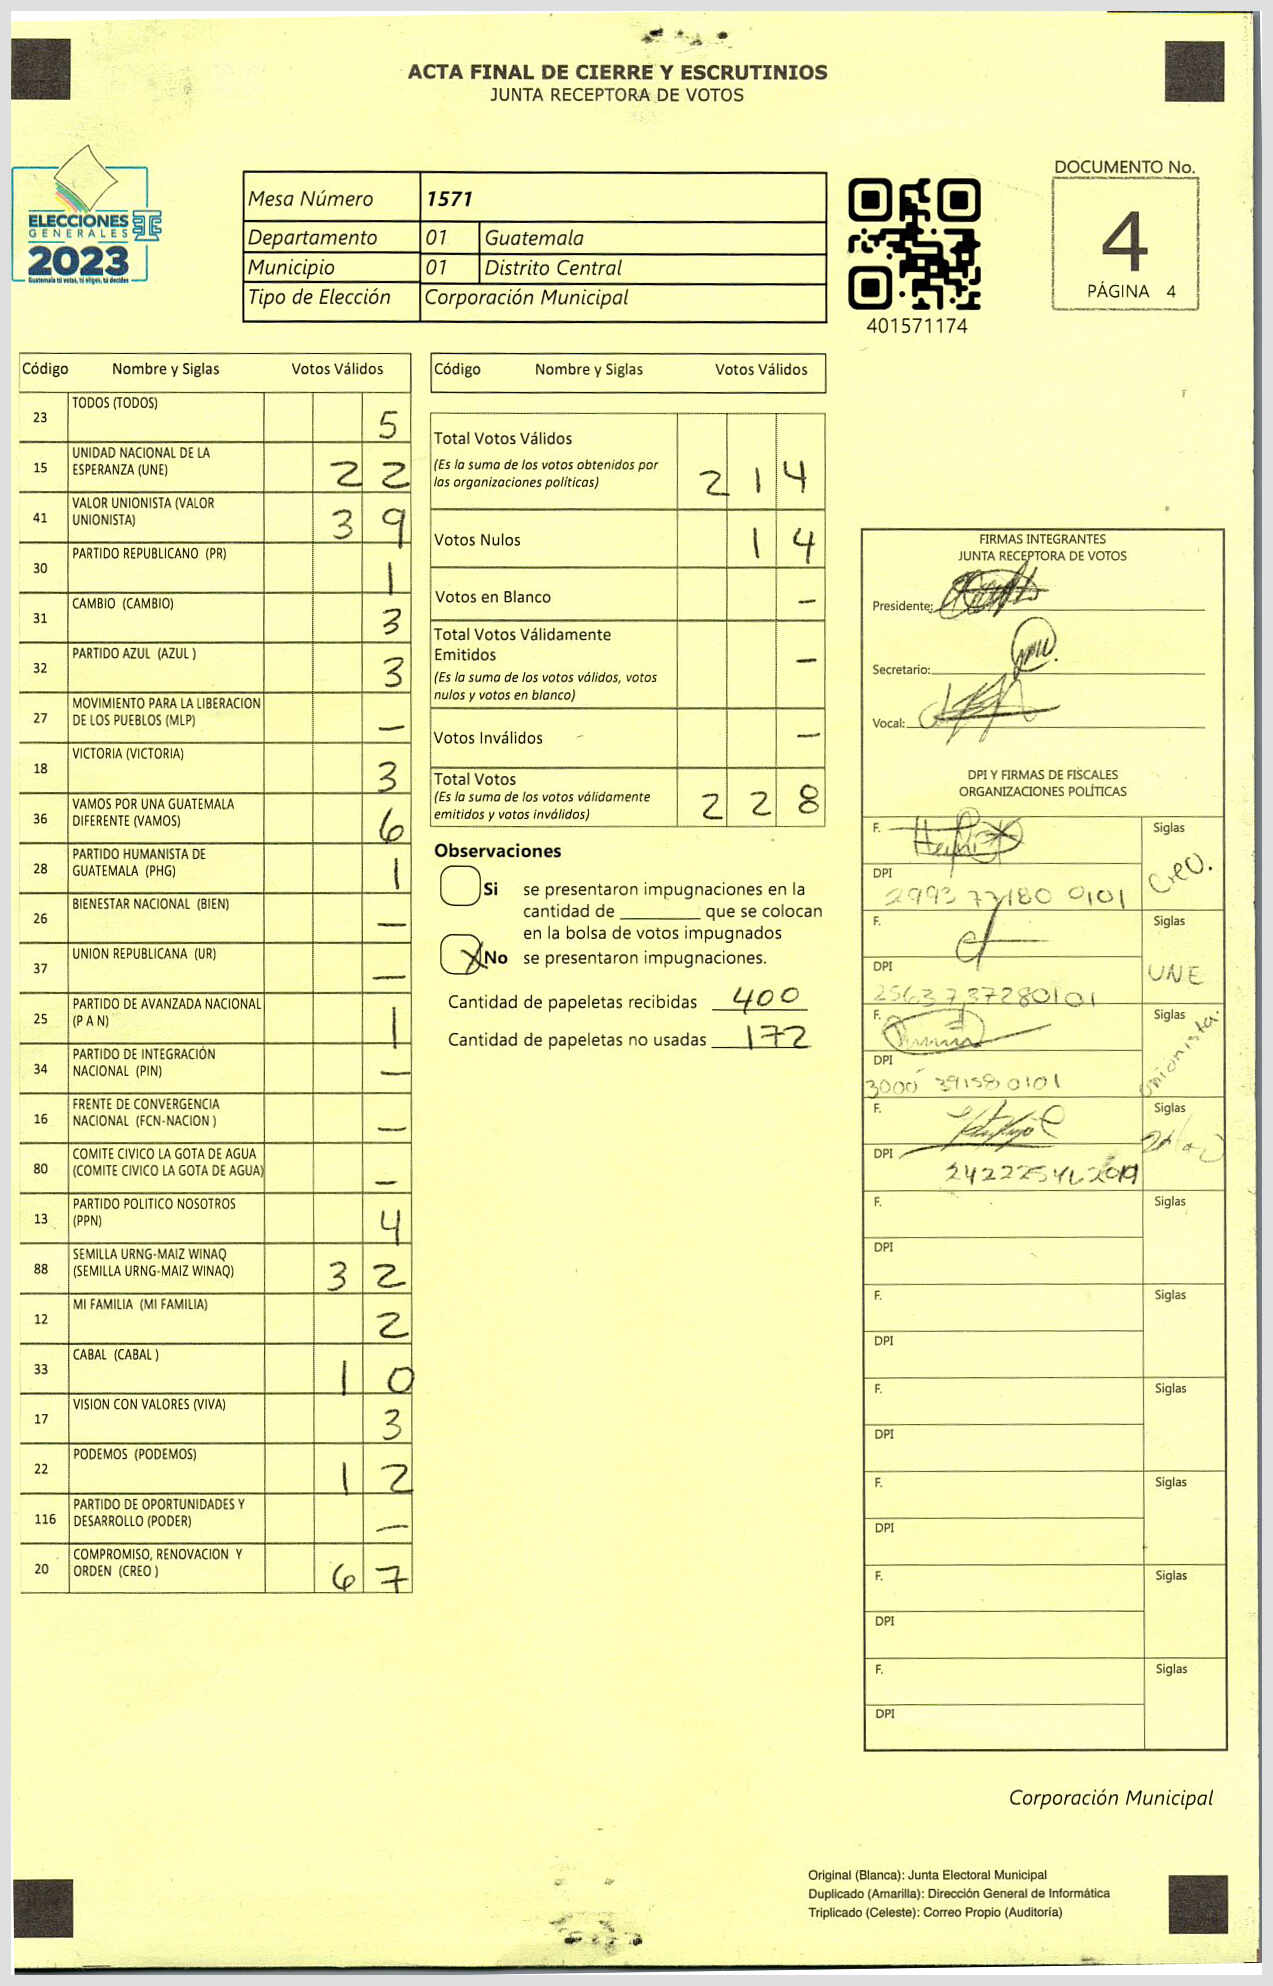 ACTA FINAL DE CIERRE Y ESCRUTINIOS
JUNTA RECEPTORA DE VOTOS
ELECCIONES
GENERALES
2023
Guatemala tú votas, tú eliges, tú decides
Mesa Número 1571
Departamento 01 Guatemala
Municipio 01 Distrito Central
Tipo de Elección Corporación Municipal
401571174
DOCUMENTO No.
4
PÁGINA 4
Código Nombre y Siglas Votos Válidos
23 TODOS (TODOS) 5
15 UNIDAD NACIONAL DE LA
ESPERANZA (UNE) 2 2
41 VALOR UNIONISTA (VALOR
UNIONISTA) 3 9
30 PARTIDO REPUBLICANO (PR) 1
31 CAMBIO (CAMBIO) 3
32 PARTIDO AZUL (AZUL ) 3
27 MOVIMIENTO PARA LA LIBERACION
DE LOS PUEBLOS (MLP) —
18 VICTORIA (VICTORIA) 3
36 VAMOS POR UNA GUATEMALA
DIFERENTE (VAMOS) 6
28 PARTIDO HUMANISTA DE
GUATEMALA (PHG) 1
26 BIENESTAR NACIONAL (BIEN) —
37 UNION REPUBLICANA (UR) —
25 PARTIDO DE AVANZADA NACIONAL
(P A N) 1
34 PARTIDO DE INTEGRACIÓN
NACIONAL (PIN) —
16 FRENTE DE CONVERGENCIA
NACIONAL (FCN-NACION ) —
80 COMITE CIVICO LA GOTA DE AGUA
(COMITE CIVICO LA GOTA DE AGUA) —
13 PARTIDO POLITICO NOSOTROS
(PPN) 4
88 SEMILLA URNG-MAIZ WINAQ
(SEMILLA URNG-MAIZ WINAQ) 3 2
12 MI FAMILIA (MI FAMILIA) 2
33 CABAL (CABAL ) 1 0
17 VISION CON VALORES (VIVA) 3
22 PODEMOS (PODEMOS) 1 2
116 PARTIDO DE OPORTUNIDADES Y
DESARROLLO (PODER) —
20 COMPROMISO, RENOVACION Y
ORDEN (CREO ) 6 7
Código Nombre y Siglas Votos Válidos
Total Votos Válidos
(Es la suma de los votos obtenidos por
las organizaciones políticas) 2 1 4
Votos Nulos 1 4
Votos en Blanco —
Total Votos Válidamente
Emitidos —
(Es la suma de los votos válidos, votos
nulos y votos en blanco)
Votos Inválidos —
Total Votos
(Es la suma de los votos válidamente
emitidos y votos inválidos) 2 2 8
Observaciones
Si se presentaron impugnaciones en la
cantidad de ________ que se colocan
en la bolsa de votos impugnados
X No se presentaron impugnaciones.
Cantidad de papeletas recibidas 400
Cantidad de papeletas no usadas 172
FIRMAS INTEGRANTES
JUNTA RECEPTORA DE VOTOS
Presidente:
Secretario:
Vocal:
DPI Y FIRMAS DE FISCALES
ORGANIZACIONES POLÍTICAS
F. Siglas
DPI creo.
2993 77180 0101
F. Siglas
DPI UNE
25637 37280101
F. Siglas
DPI Unionista.
3000 39158 0101
F. Siglas
DPI
F. Siglas
DPI
F. Siglas
DPI
F. Siglas
DPI
F. Siglas
DPI
F. Siglas
DPI
F. Siglas
DPI
Corporación Municipal
Original (Blanca): Junta Electoral Municipal
Duplicado (Amarilla): Dirección General de Informática
Triplicado (Celeste): Correo Propio (Auditoría)